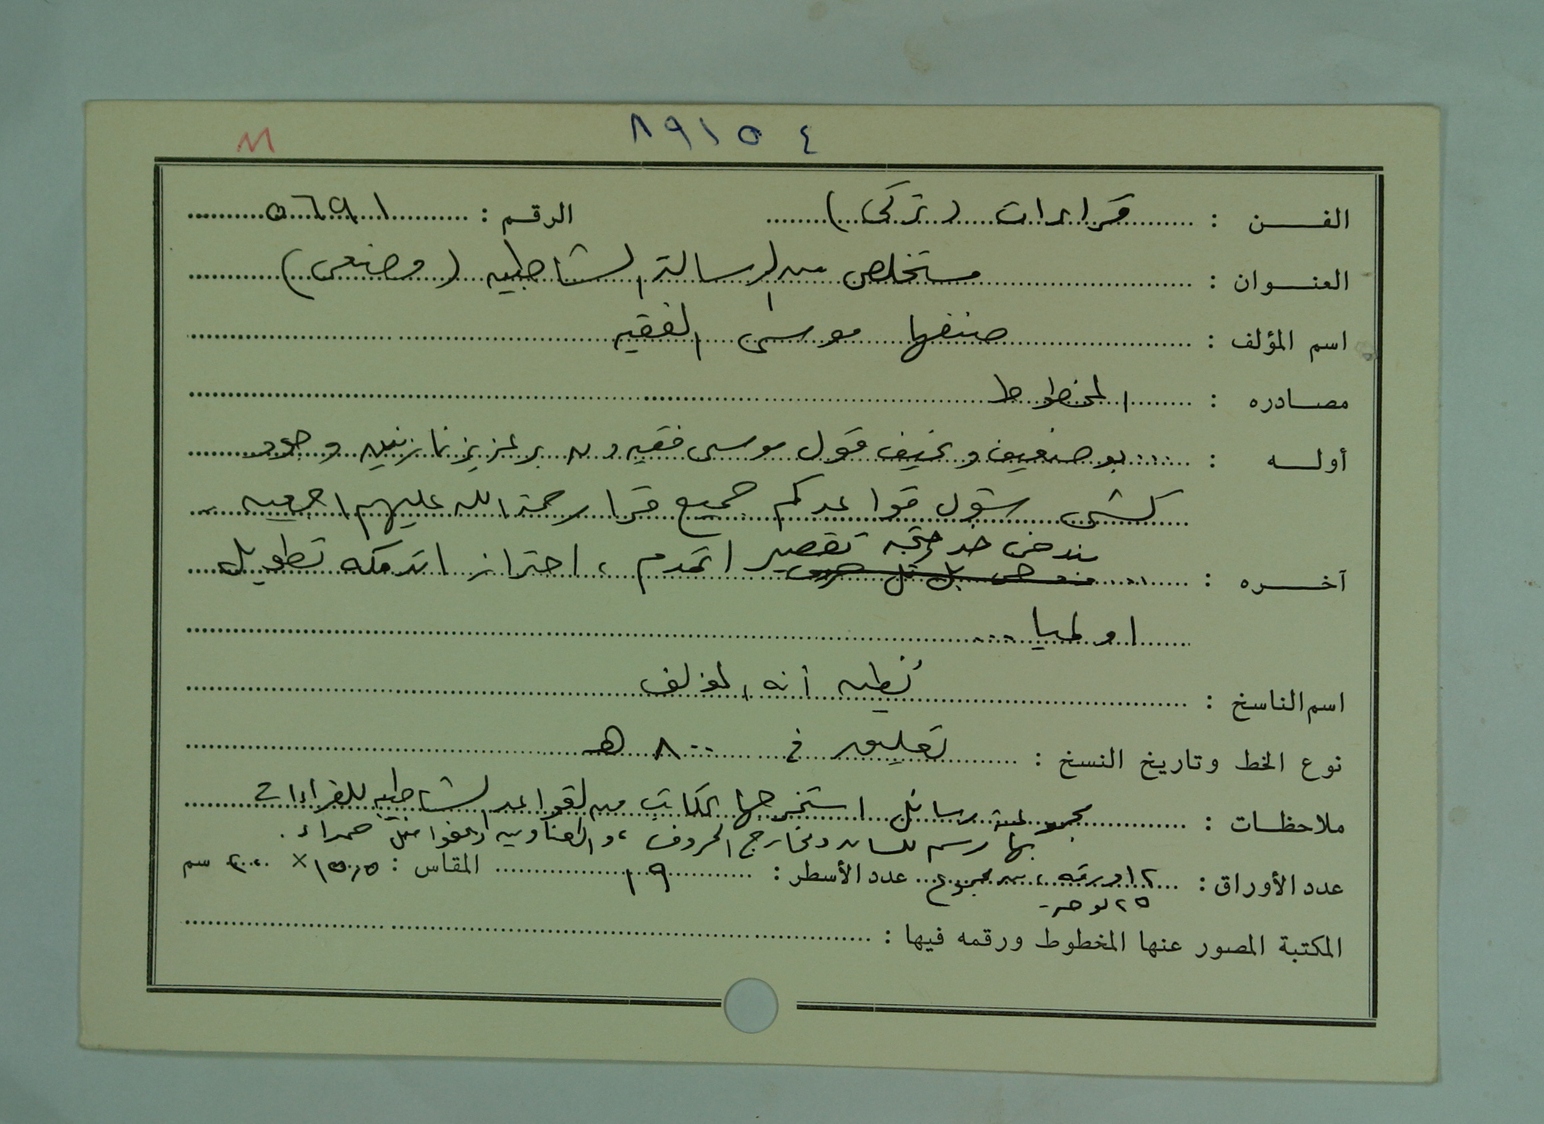 ٨٩١٥٤
M
الفــن : قراءات (تركي) الرقم : ٥٦٩١
العنــوان : مستخلص من الرسالة الشاطبية (وضعي)
اسم المؤلف : صنفها موسى الفقيه
مصــادره : المخطوط
أولــه : ... بو ضعيف و نحيف قول موسى فقيه دن بر عزيز نازنين وجود
كشي سؤل قواعدكم جميع قرا رحمة الله عليهم اجمعين ..
آخــره : ... تقصير اتمدم ، احتراز اتدمكه تطويل
اولميا ...
اسم الناسخ : نظنه أنه المؤلف
نوع الخط وتاريخ النسخ : تعليق في ٨٠٠ هـ
ملاحظــات : مجموعة رسائل استخرجها الكاتب من القواعد الشاطبية للقراءات
بها رسم للسان ومخارج الحروف ، والعناوين حمراء .
عدد الأوراق : ١٢ ورقة ، من مجموع عدد الأسطر : ١٩ المقاس : ١٥،٥ × ٢٠،٠ سم
٢٥ لوحة -
المكتبة المصور عنها المخطوط ورقمه فيها :